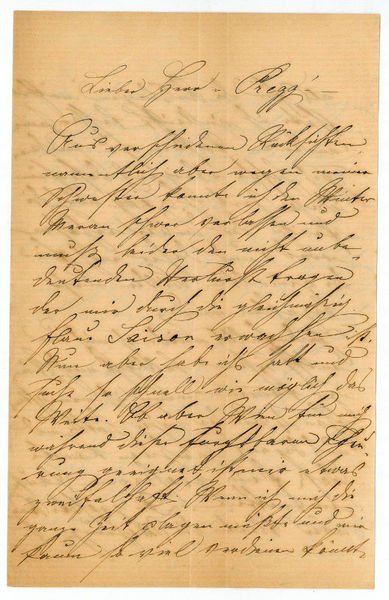 Lieber Herr v. Regg! —
Aus verschiedenen Rücksichten
namentlich aber wegen meiner
Schwester konnte ich den Winter
schwer verlassen und
muß leider den nicht unbe-
deutenden Verlust tragen
der mir durch die gleichmäßig
flaue Saison erwachsen ist.
Nun aber habe ich satt und
suche so schnell wie möglich das
Weite. Ob aber Wien für mich
während dieser furchtbaren Theu-
rung geeignet ist mir etwas
zweifelhaft. Wenn ich mich die
ganze Zeit plagen müßte und nur
kaum so viel verdienen könnt-